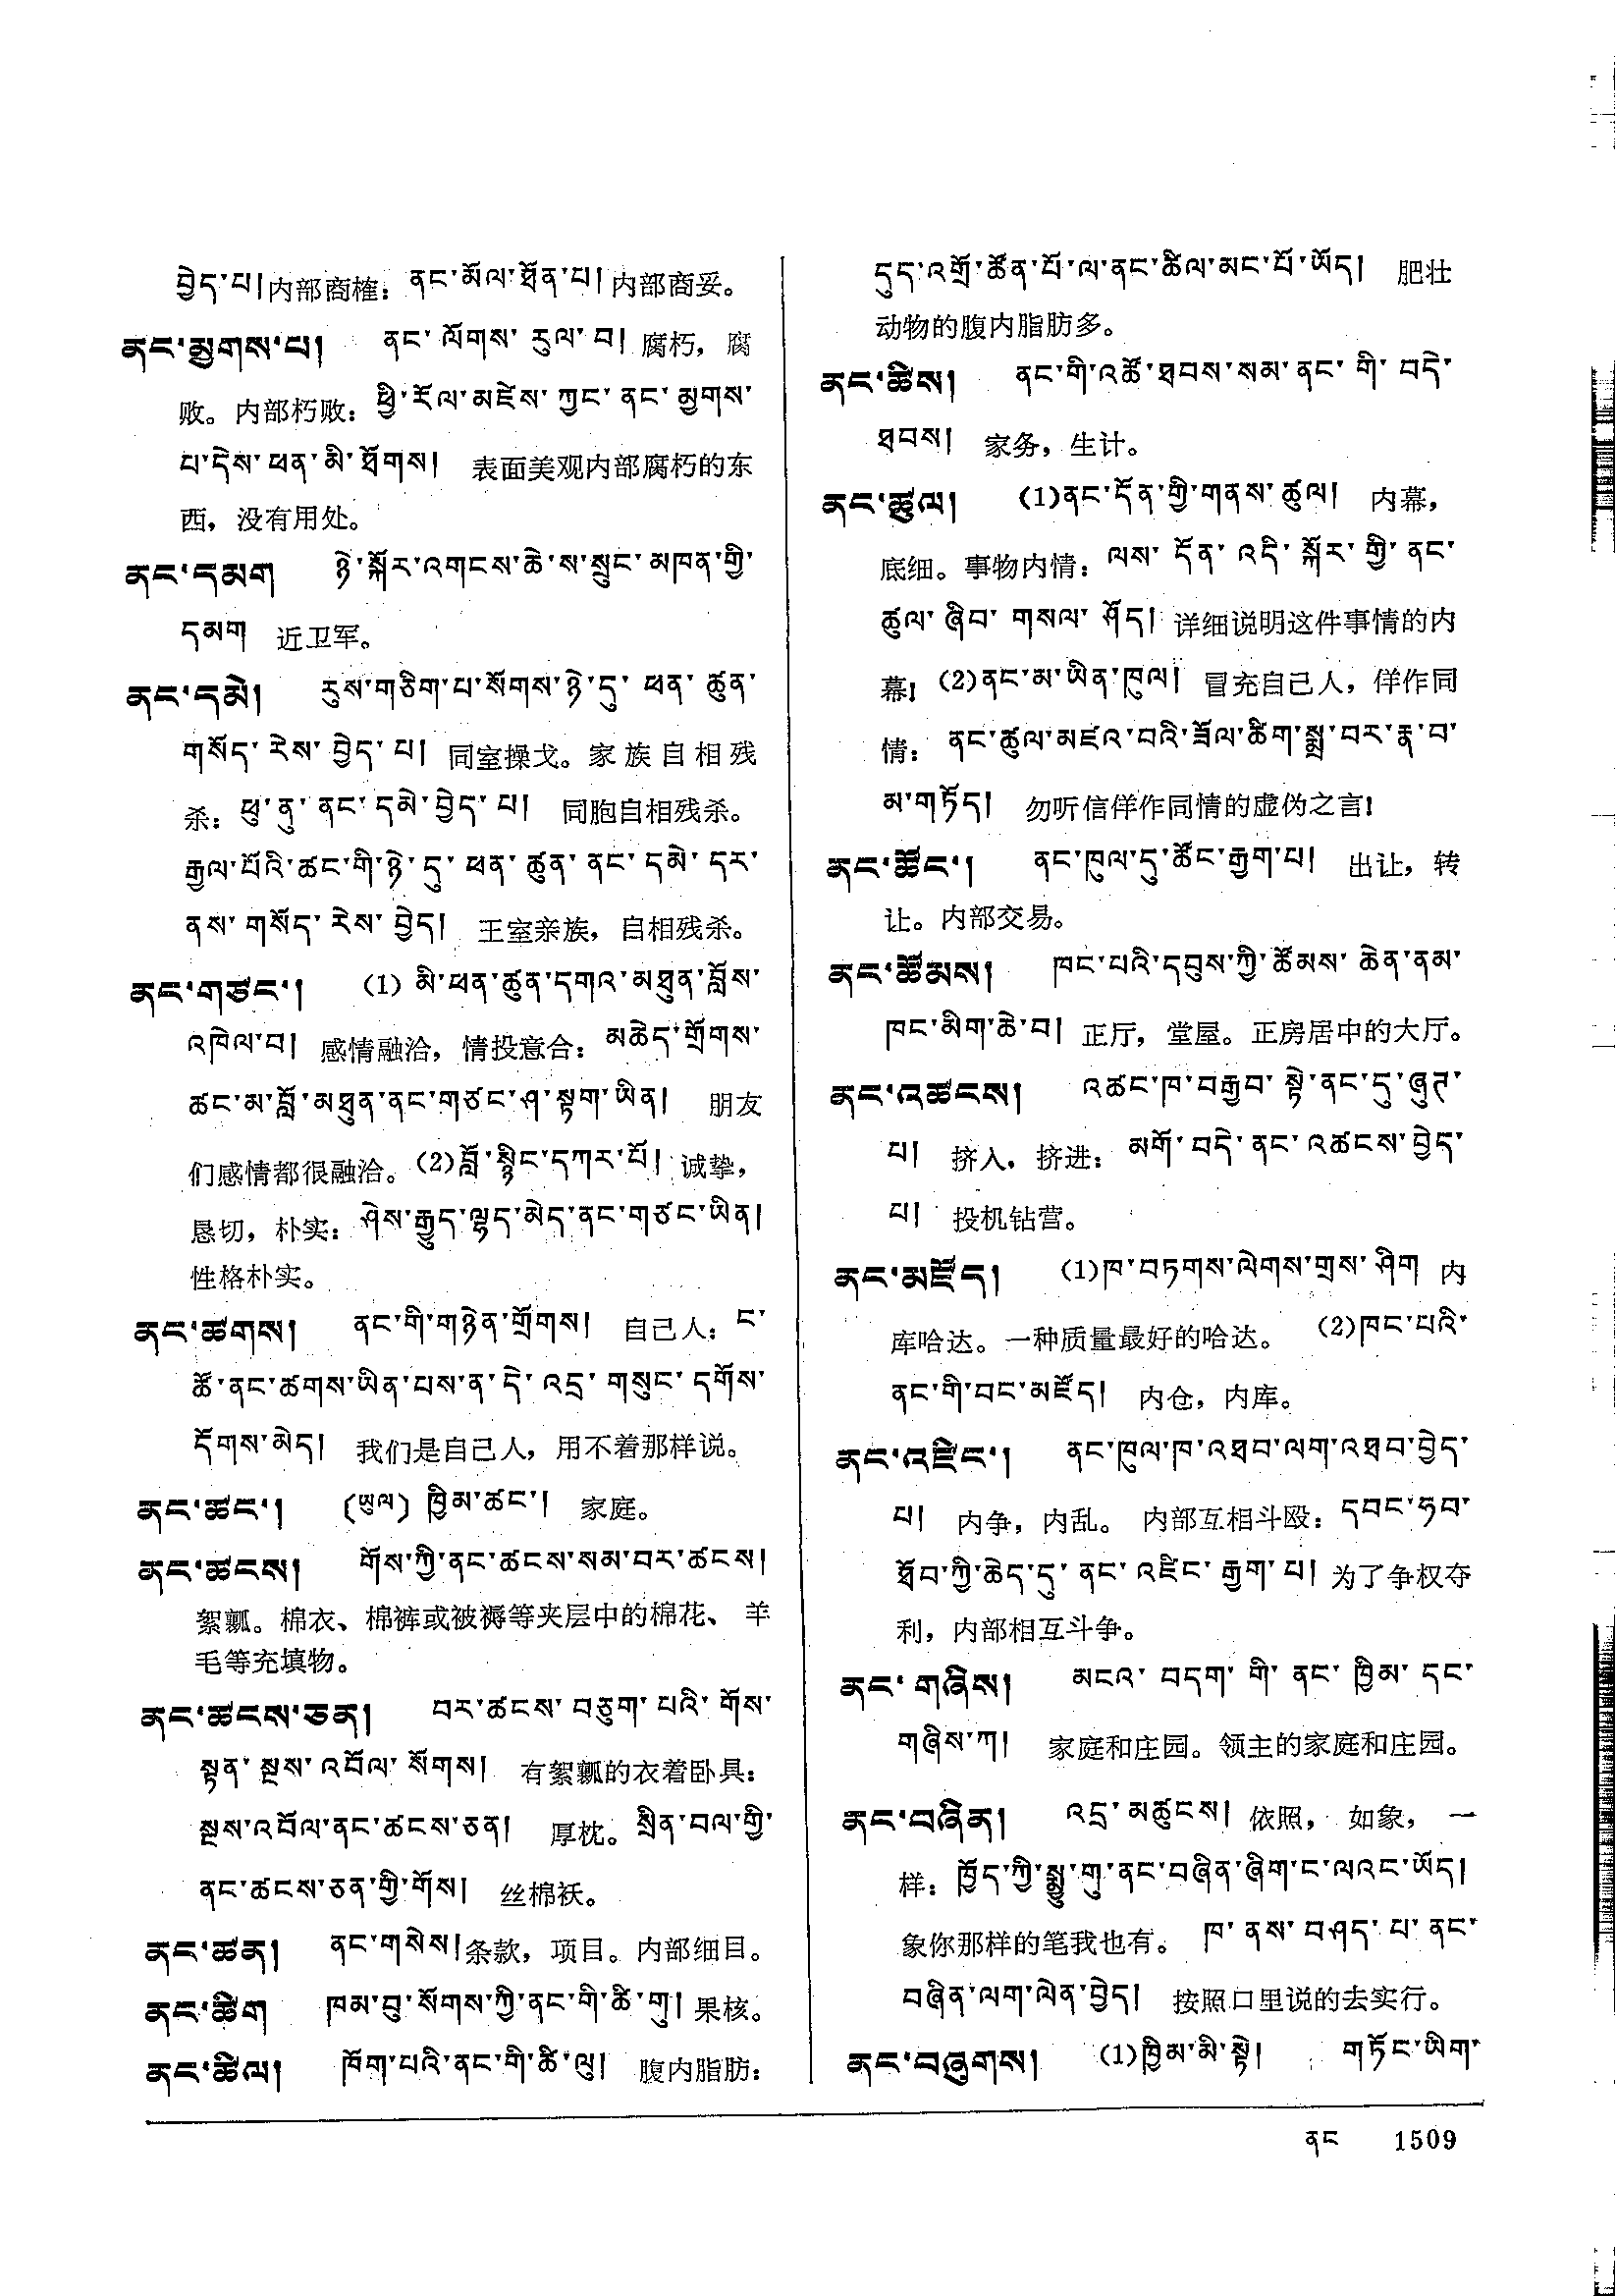 བྱེད་པ། 内部商榷：ནང་མོལ་ཐོན་པ། 内部商妥。
ནང་མྱགས་པ། ནང་ལོགས་རུལ་བ། 腐朽，腐
败。内部朽败：ཕྱི་རོལ་མཛེས་ཀྱང་ནང་མྱགས་
པ་དེས་ཕན་མི་ཐོགས། 表面美观内部腐朽的东
西，没有用处。
ནང་དམག ཉེ་སྐོར་འགངས་ཆེ་ས་སྲུང་མཁན་གྱི་
དམག 近卫军。
ནང་དམེ། རུས་གཅིག་པ་སོགས་ཉེ་དུ་ཕན་ཚུན་
གསོད་རེས་བྱེད་པ། 同室操戈。家族自相残
杀：ཕུ་ནུ་ནང་དམེ་བྱེད་པ། 同胞自相残杀。
རྒྱལ་པོའི་ཚང་གི་ཉེ་དུ་ཕན་ཚུན་ནང་དམེ་དར་
ནས་གསོད་རེས་བྱེད། 王室亲族，自相残杀。
ནང་གཙང་། (1) མི་ཕན་ཚུན་དགའ་མཐུན་བློས་
འཁེལ་བ། 感情融洽，情投意合：མཆེད་གྲོགས་
ཚང་མ་བློ་མཐུན་ནང་གཙང་ཤ་སྟག་ཡིན། 朋友
们感情都很融洽。(2)བློ་སྙིང་དཀར་པོ། 诚挚，
恳切，朴实：ཤེས་རྒྱུད་ལྷད་མེད་ནང་གཙང་ཡིན།
性格朴实。
ནང་ཚགས། ནང་གི་གཉེན་གྲོགས། 自己人：ང་
ཚོ་ནང་ཚགས་ཡིན་པས་ན་དེ་འདྲ་གསུང་དགོས་
དོགས་མེད། 我们是自己人，用不着那样说。
ནང་ཚང་། (ཡུལ) ཁྱིམ་ཚང་། 家庭。
ནང་ཚངས། གོས་ཀྱི་ནང་ཚངས་སམ་བར་ཚངས།
絮瓤。棉衣、棉裤或被褥等夹层中的棉花、羊
毛等充填物。
ནང་ཚངས་ཅན། བར་ཚངས་བཅུག་པའི་གོས་
སྟན་སྔས་འབོལ་སོགས། 有絮瓤的衣着卧具：
སྔས་འབོལ་ནང་ཚངས་ཅན། 厚枕。སྲིན་བལ་གྱི་
ནང་ཚངས་ཅན་གྱི་གོས། 丝棉袄。
ནང་ཚན། ནང་གསེས། 条款，项目。内部细目。
ནང་ཚིག ཁམ་བུ་སོགས་ཀྱི་ནང་གི་ཚི་གུ། 果核。
ནང་ཚིལ། ཁོག་པའི་ནང་གི་ཚི་ལུ། 腹内脂肪：
དུད་འགྲོ་ཚོན་པོ་ལ་ནང་ཚིལ་མང་པོ་ཡོད། 肥壮
动物的腹内脂肪多。
ནང་ཚིས། ནང་གི་འཚོ་ཐབས་སམ་ནང་གི་བདེ་
ཐབས། 家务，生计。
ནང་ཚུལ། (1)ནང་དོན་གྱི་གནས་ཚུལ། 内幕，
底细。事物内情：ལས་དོན་འདི་སྐོར་གྱི་ནང་
ཚུལ་ཞིབ་གསལ་ཤོད། 详细说明这件事情的内
幕！(2)ནང་མ་ཡིན་ཁུལ། 冒充自己人，佯作同
情：ནང་ཚུལ་མཛའ་བའི་ཟོལ་ཚིག་སྨྲ་བར་རྣ་བ་
མ་གཏོད། 勿听信佯作同情的虚伪之言！
ནང་ཚོང་། ནང་ཁུལ་དུ་ཚོང་རྒྱག་པ། 出让，转
让。内部交易。
ནང་ཚོམས། ཁང་པའི་དབུས་ཀྱི་ཚོམས་ཆེན་ནམ་
ཁང་མིག་ཆེ་བ། 正厅，堂屋。正房居中的大厅。
ནང་འཚངས། འཚང་ཁ་བརྒྱབ་སྟེ་ནང་དུ་ཞུཊ་
པ། 挤入，挤进：མགོ་བདེ་ནང་འཚངས་བྱེད་
པ། 投机钻营。
ནང་མཛོད། (1)ཁ་བཏགས་ལེགས་གྲས་ཤིག 内
库哈达。一种质量最好的哈达。 (2)ཁང་པའི་
ནང་གི་བང་མཛོད། 内仓，内库。
ནང་འཛིང་། ནང་ཁུལ་ཁ་འཐབ་ལག་འཐབ་བྱེད་
པ། 内争，内乱。 内部互相斗殴：དབང་ཧབ་
ཐོབ་ཀྱི་ཆེད་དུ་ནང་འཛིང་རྒྱག་པ། 为了争权夺
利，内部相互斗争。
ནང་གཞིས། མངའ་བདག་གི་ནང་ཁྱིམ་དང་
གཞིས་ཀ། 家庭和庄园。领主的家庭和庄园。
ནང་བཞིན། འདྲ་མཚུངས། 依照，如象，一
样：ཁྱོད་ཀྱི་སྨྱུ་གུ་ནང་བཞིན་ཞིག་ང་ལའང་ཡོད།
象你那样的笔我也有。 ཁ་ནས་བཤད་པ་ནང་
བཞིན་ལག་ལེན་བྱེད། 按照口里说的去实行。
ནང་བཞུགས། (1)ཁྱིམ་མི་སྟེ། གཏོང་ཡིག་
ནང 1509